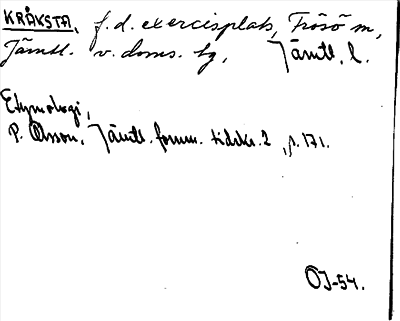 KRÅKSTA, f.d. exercisplats, Frösö m,
Jämtl. v. doms. tg, Jämtl. l.
Etymologi,
P. Olsson, Jämtl. fornm. tidskr. 2, s. 171.
OJ-54.